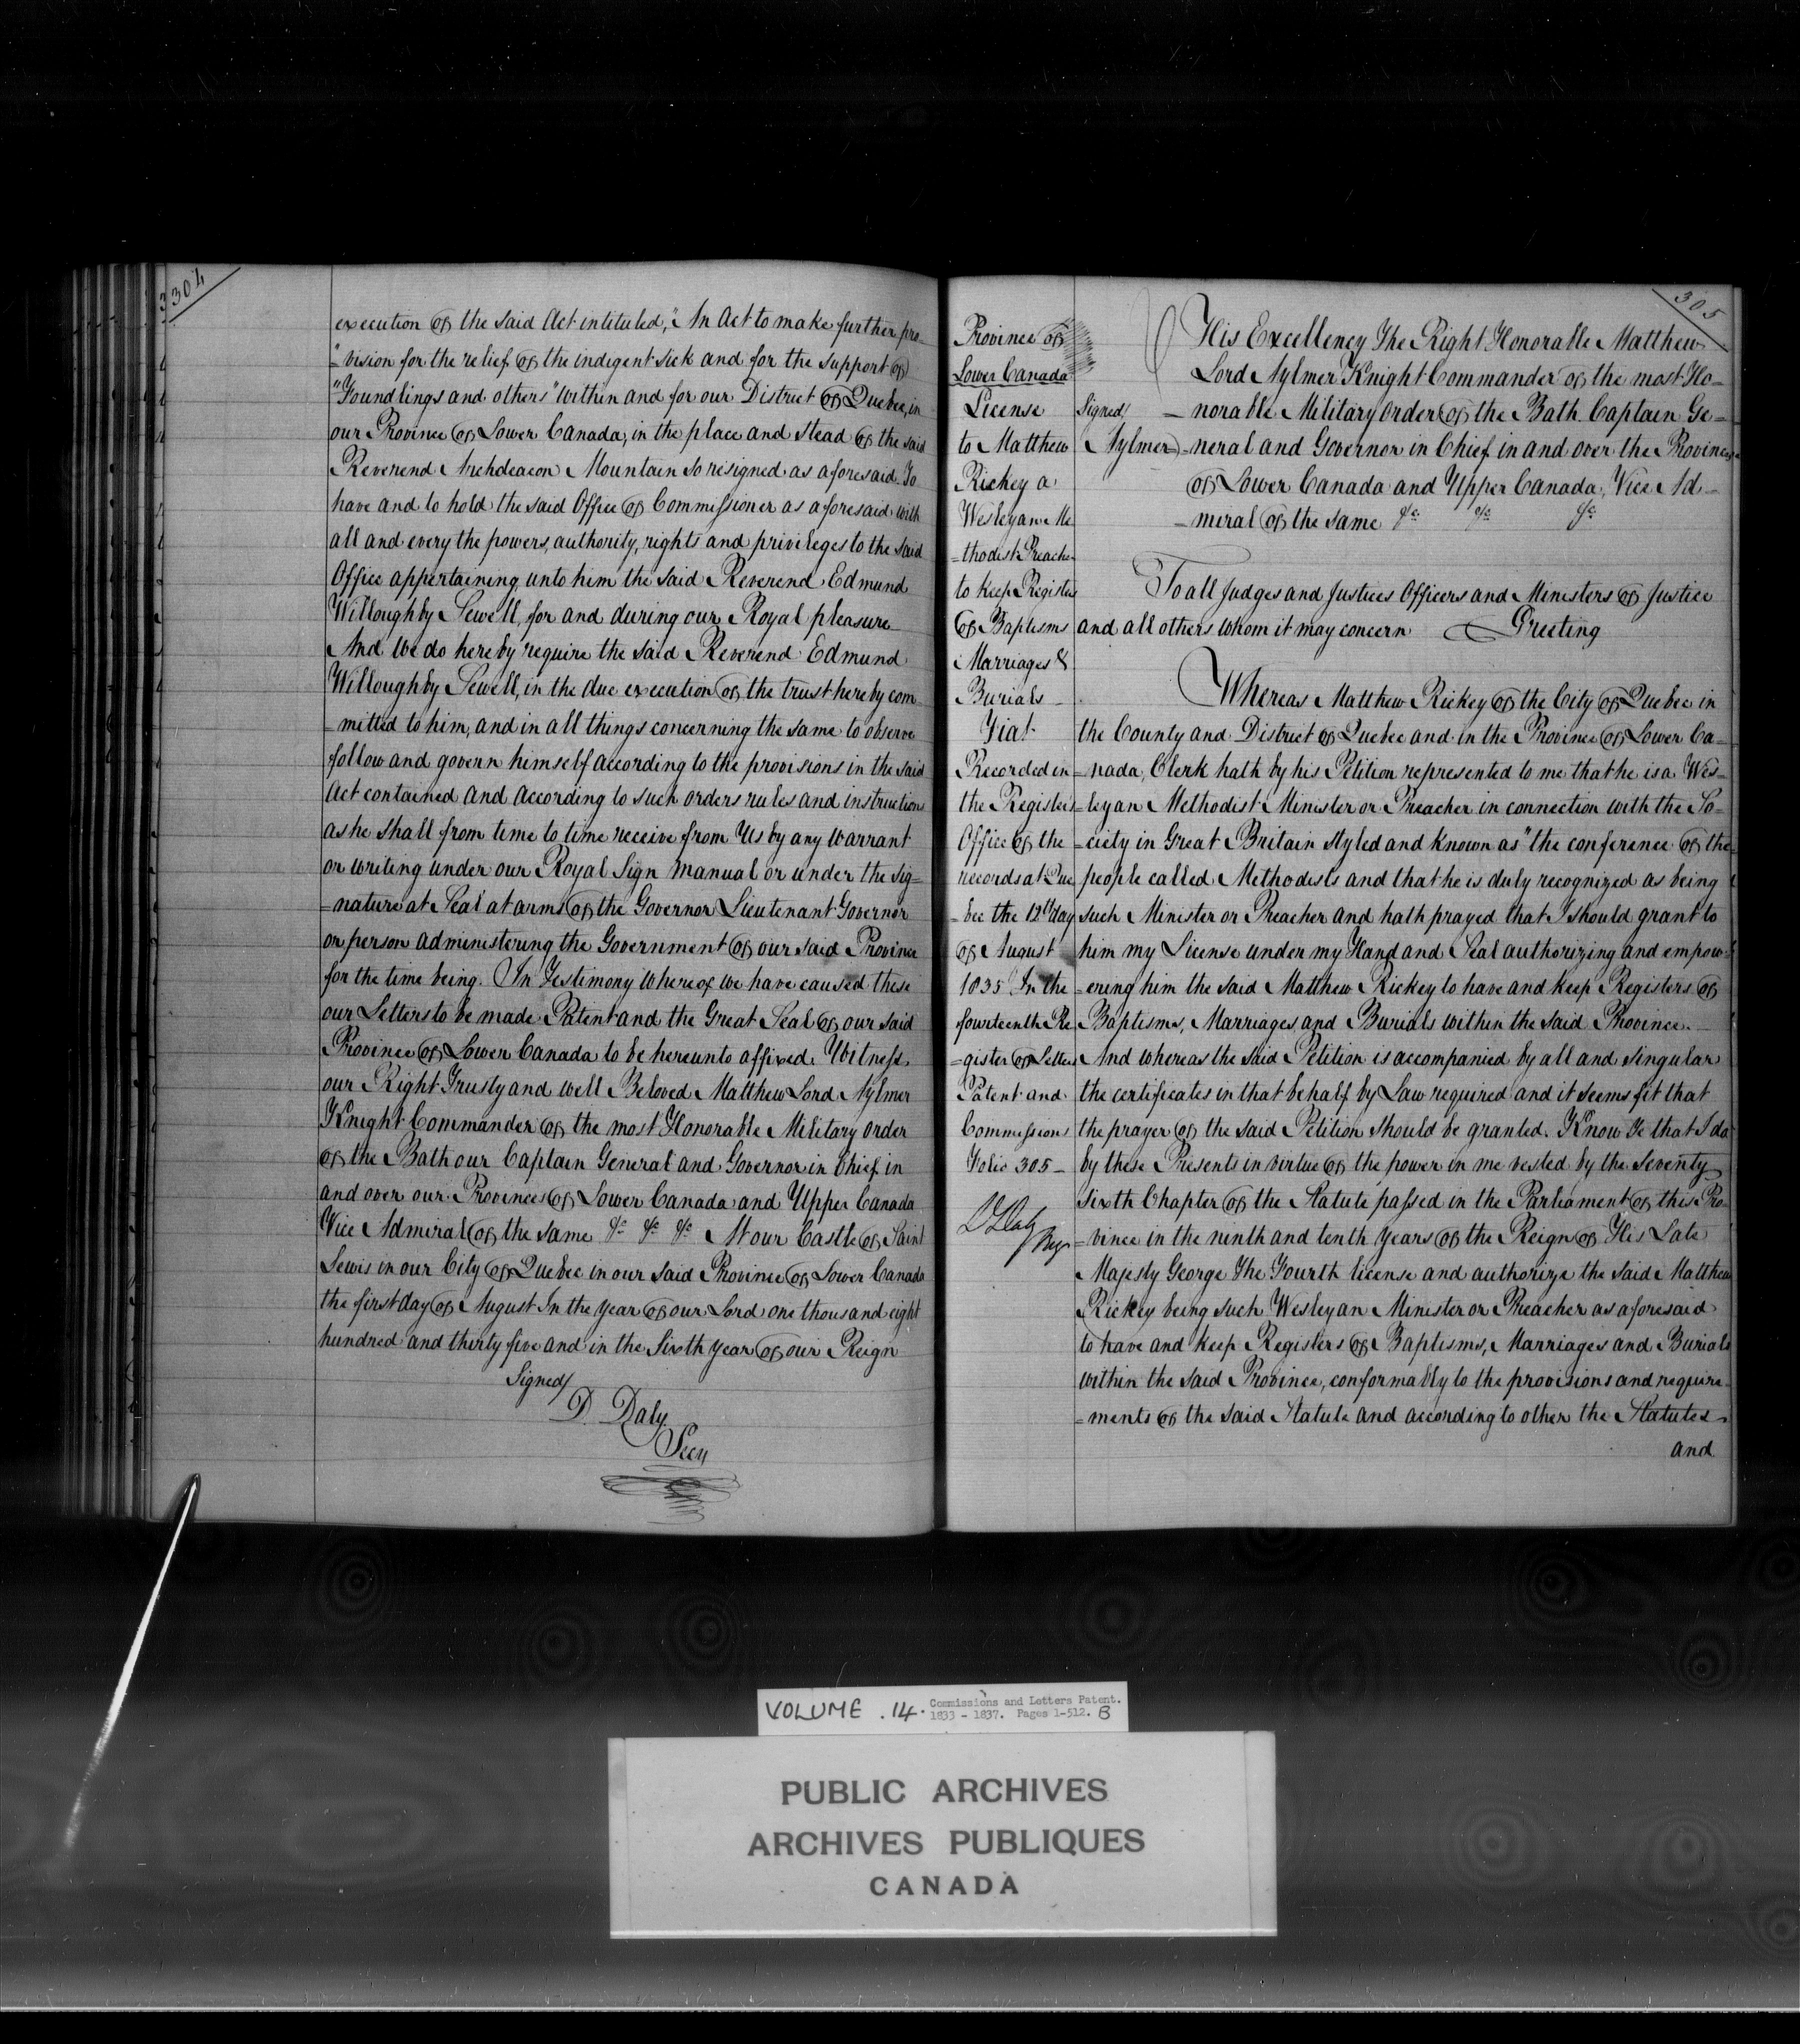 304
execution of the said Act intituled, "An Act to make further pro-
"-vision for the relief of the indigent sick and for the support of
"Foundlings and others" within and for our District of Quebec, in
our Province of Lower Canada, in the place and stead of the said
Reverend Archdeacon Mountain so resigned as aforesaid. To
have and to hold the said Office of Commissioner as aforesaid with
all and every the powers, authority, rights and privileges to the said
Office appertaining unto him the said Reverend Edmund
Willoughby Sewell, for and during our Royal pleasure
And we do hereby require the said Reverend Edmund
Willoughby Sewell, in the due execution of the trust hereby com-
=mitted to him, and in all things concerning the same to observe
follow and govern himself according to the provisions in the said
Act contained and according to such orders rules and instructions
as he shall from time to time receive from Us by any warrant
or writing under our Royal Sign manual or under the Sig=
=nature at Seal at arms of the Governor Lieutenant Governor
or person administering the Government of our said Province
for the time being. In Testimony whereof we have caused these
our Letters to be made Patent and the Great Seal of our said
Province of Lower Canada to be hereunto affixed. Witness
our Right Trusty and well Beloved Matthew Lord Aylmer
Knight Commander of the most Honorable Military Order
of the Bath our Captain General and Governor in Chief in
and over our Provinces of Lower Canada and Upper Canada
Vice Admiral of the same &c &c &c At our Castle of Saint
Lewis in our City of Quebec in our said Province of Lower Canada
the first day of August In the year of our Lord one thousand eight
hundred and thirty five and in the Sixth year of our Reign
Signed/
D. Daly
Secy
305
Province of
Lower Canada
License
to Matthew
Richey a
Wesleyan Me
=thodist Preacher
to keep Registers
of Baptisms
Marriages &
Burials
Fiat
Recorded in
the Registers
Office of the
records at Que
=bec the 12th day
of August
1835 In the
fourteenth Re
=gister of Letters
Patent and
Commissions
Folio 305
D Daly
Regr
Signed/
Aylmer
His Excellency The Right Honorable Matthew
Lord Aylmer Knight Commander of the most Ho=
=norable Military Order of the Bath Captain Ge=
=neral and Governor in Chief in and over the Provinces
of Lower Canada and Upper Canada, Vice Ad=
=miral of the same &c &c &c
To all Judges and Justices Officers and Ministers of Justice
and all others whom it may concern Greeting
Whereas Matthew Richey of the City of Quebec in
the County and District of Quebec and in the Province of Lower Ca=
=nada, Clerk hath by his Petition represented to me that he is a Wes=
=leyan Methodist Minister or Preacher in connection with the So=
=ciety in Great Britain styled and known as "the conference of the
people called Methodists and that he is duly recognized as being
such Minister or Preacher and hath prayed that I should grant to
him my License under my Hand and Seal authorizing and empow=
=ering him the said Matthew Richey to have and keep Registers of
Baptisms, Marriages and Burials within the said Province.
And whereas the said Petition is accompanied by all and singular
the certificates in that behalf by Law required and it seems fit that
the prayer of the said Petition should be granted. Know Ye that I do
by these Presents in virtue of the power in me vested by the Seventy
Sixth Chapter of the Statute passed in the Parliament of this Pro-
=vince in the ninth and tenth years of the Reign of His Late
Majesty George The Fourth license and authorize the said Matthew
Richey being such Wesleyan Minister or Preacher as aforesaid
to have and keep Registers of Baptisms, Marriages and Burials
within the said Province, conformably to the provisions and require-
=ments of the said Statute and according to other the Statutes
and
VOLUME .14. Commissions and Letters Patent.
1833 - 1837. Pages 1-512. B
PUBLIC ARCHIVES
ARCHIVES PUBLIQUES
CANADA